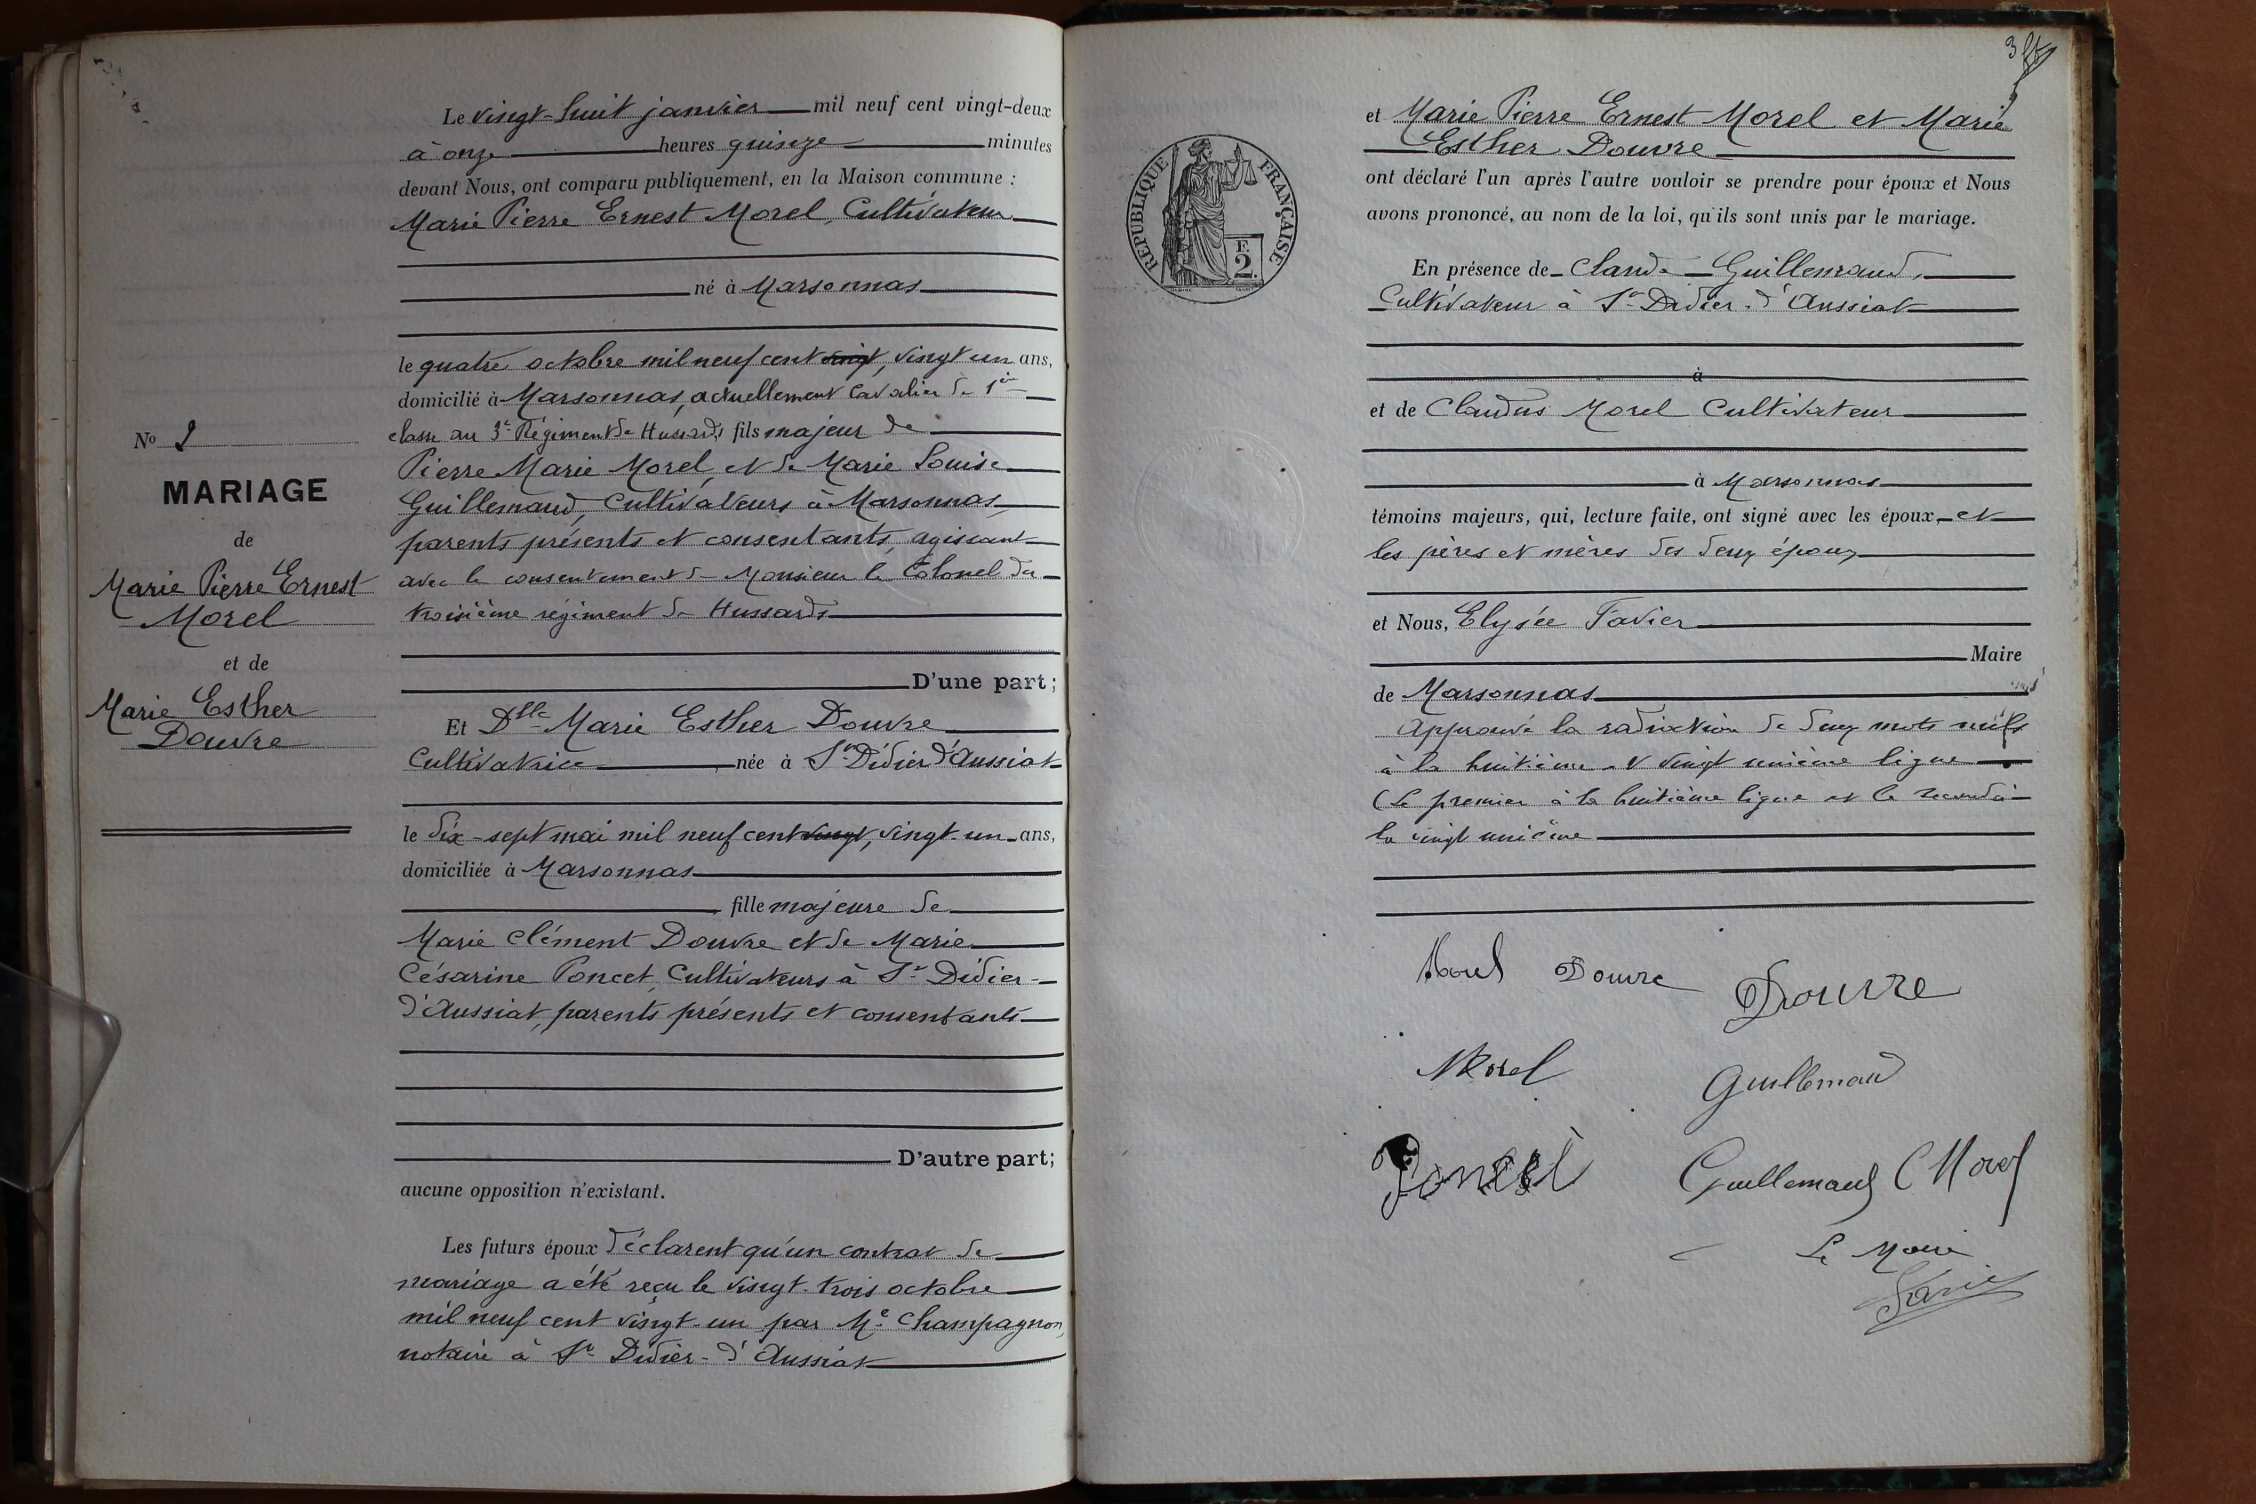 Le vingt-huit janvier mil neuf cent vingt-deux
à onze heures quinze minutes
devant Nous, ont comparu publiquement, en la Maison commune :
Marie Pierre Ernest Morel, Cultivateur
né à Marsonnas
le quatre octobre mil neuf cent vingt, vingt un ans,
domicilié à Marsonnas, actuellement Cavalier de 1ère
classe au 3e Régiment de Hussards fils majeur de
Pierre Marie Morel, et de Marie Louise
Guillemaud, Cultivateurs à Marsonnas,
parents présents et consentants, agissant
avec le consentement de Monsieur le Colonel du
troisième régiment de Hussards
D'une part ;
No 2
MARIAGE
de
Marie Pierre Ernest
Morel
et de
Marie Esther
Douvre
Et Dlle Marie Esther Douvre
Cultivatrice née à St Didier d'Aussiat
le dix-sept mai mil neuf cent vingt, vingt-un ans,
domiciliée à Marsonnas
fille majeure de
Marie Clément Douvre et de Marie
Césarine Poncet, Cultivateurs à St Didier-
d'Aussiat, parents présents et consentants
D'autre part ;
aucune opposition n'existant.
Les futurs époux déclarent qu'un contrat de
mariage a été reçu le vingt-trois octobre
mil neuf cent vingt-un par Me Champagnon,
notaire à St Didier-d'Aussiat
et Marie Pierre Ernest Morel et Marie
Esther Douvre
ont déclaré l'un après l'autre vouloir se prendre pour époux et Nous
avons prononcé, au nom de la loi, qu'ils sont unis par le mariage.
REPUBLIQUE FRANÇAISE
F.
2.
En présence de Claude Guillemaud,
Cultivateur à St Didier-d'Aussiat
à
et de Claudus Morel Cultivateur
à Marsonnas
témoins majeurs, qui, lecture faite, ont signé avec les époux, et
les pères et mères des deux époux
et Nous, Elysée Favier
Maire
de Marsonnas
Approuvé la radiation de deux mots nuls
à la huitième et vingt unième ligne
(le premier à la huitième ligne et le second à
la vingt unième
Morel Douvre Douvre
Morel Guillemaud
Poncet Guillemaud C Morel
Le Maire
Favier